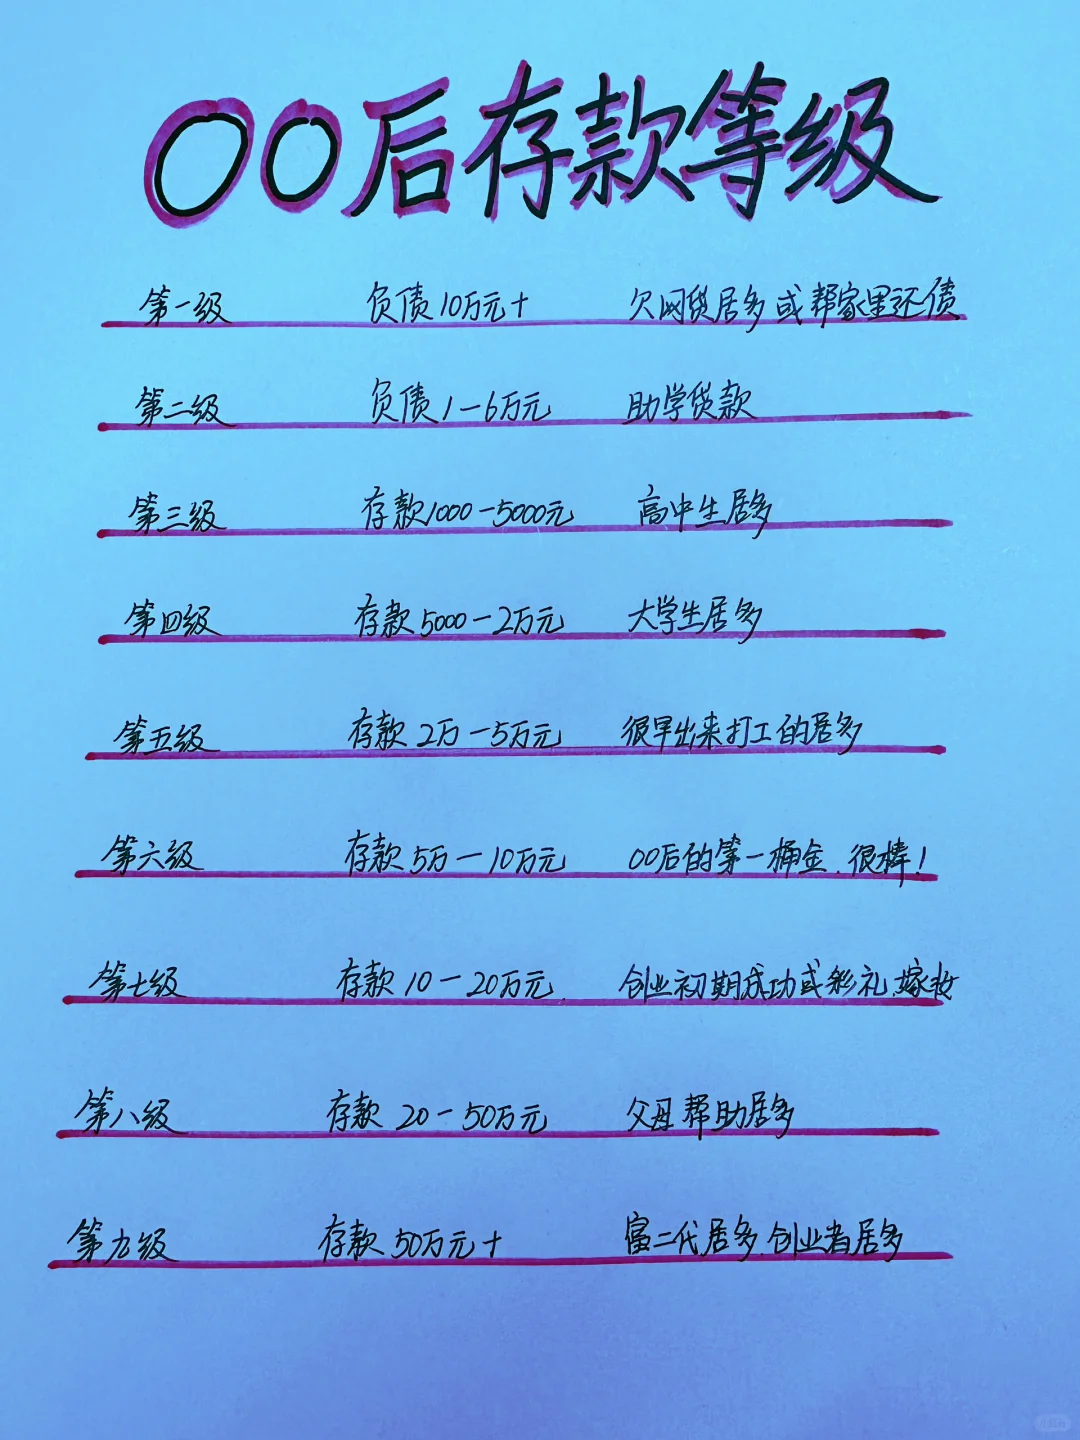 00后存款等级
第一级 负债10万元+ 欠网贷居多或帮家里还债
第二级 负债1-6万元 助学贷款
第三级 存款1000-5000元 高中生居多
第四级 存款5000-2万元 大学生居多
第五级 存款2万-5万元 很早出来打工的居多
第六级 存款5万-10万元 00后的第一桶金.很棒!
第七级 存款10-20万元. 创业初期成功或彩礼.嫁妆
第八级 存款20-50万元 父母帮助居多
第九级 存款50万元+ 富二代居多.创业者居多